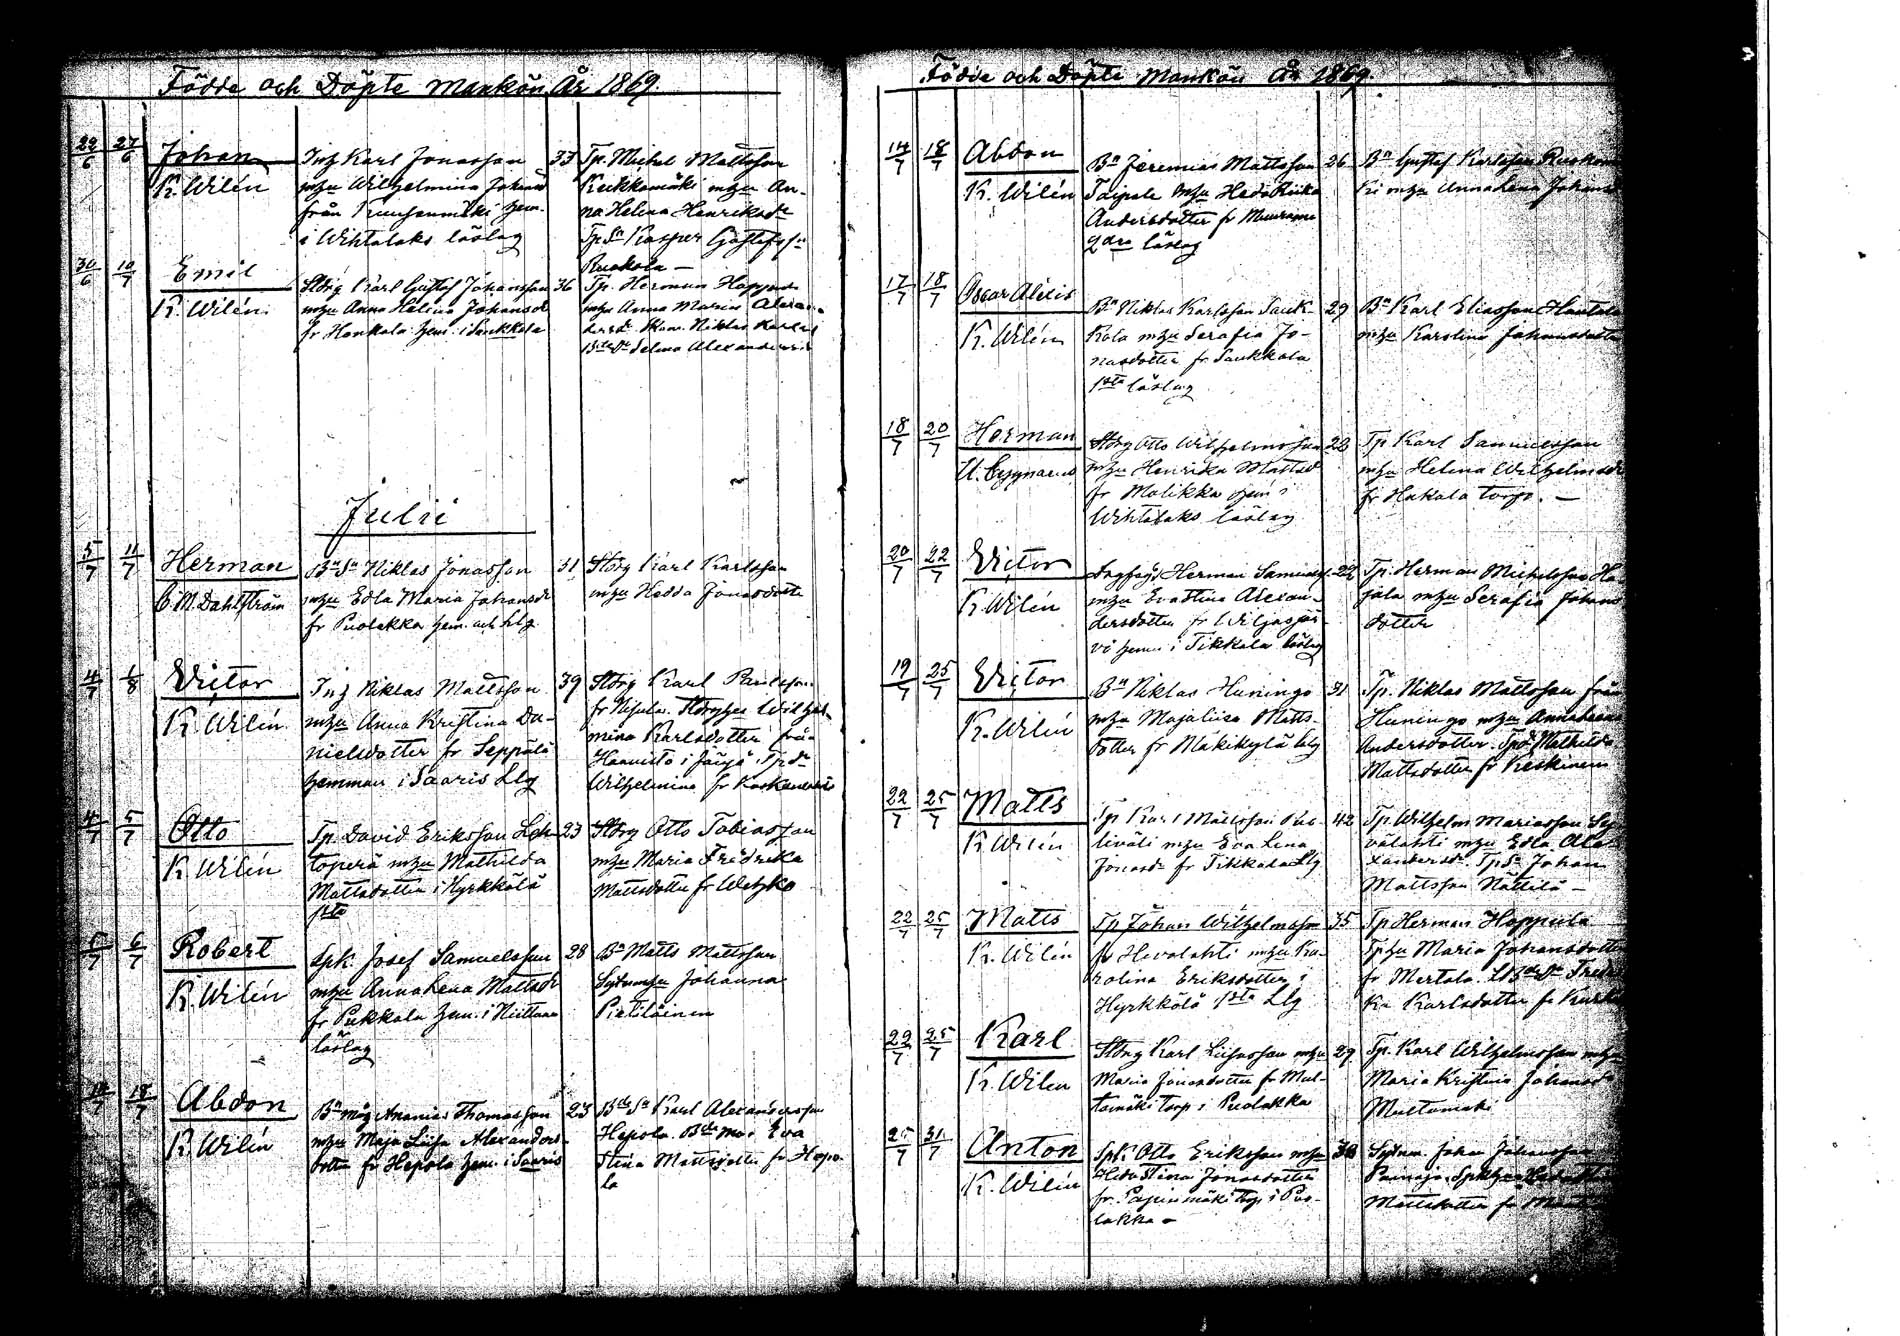 Födde och Döpte Mankön År 1869.
22/6 27/6 Johan
K. Wilén
Inh Karl Jonasson
mhu Wilhelmina Johansd
från Kuusenmäki hem.
i Wihtalaks läslag
33
Tp. Michel Mattsson
Kukkamäki mhu An-
na Helena Henriksdr
Tp Sn Kasper Gustafss
Ruokola —
30/6 10/7 Emil
K. Wilén
Stdrg Karl Gustaf Johansson
mhu Anna Helena Johansd
fr Hankala hem. i Saukkola
36
Tp. Herman
mhu Anna Maria Alexan-
dersdr Niklas
Selma Alexandersd
Julii
5/7 11/7 Herman
C. M. Dahlström
Bn Sn Niklas Jonasson
mhu Edla Maria Johansdr
fr Puolakka hem. och blg.
31
Stdrg Karl Karlsson
mhu Hedda Jonasdotter
4/7 1/8 Victor
K. Wilén
Inh Niklas Mattsson
mhu Anna Kristina Da-
nielsdotter fr Seppälä
hemman i Saaris Llg
39
Stdrg Karl
fr Stdrghu Wilhel-
mina Karlsdotter från
i Tp. dr
Wilhelmina fr
4/7 5/7 Otto
K. Wilén
Tp. David Eriksson Leh-
toperä mhu Mathilda
Mattsdotter i Hyrkkölä
1sta
23
Stdrg Otto Tobiasson
mhu Maria Fredrika
Mattsdotter fr
5/7 6/7 Robert
K. Wilén
Spk. Josef Samuelsson
mhu Anna Lena Mattsdr
fr Pukkala hem. i
läslag
28
Bn Matts Mattsson
mhu Johanna
Pietiläinen
14/7 18/7 Abdon
K. Wilén
Bn måg Ananias Thomasson
mhu Maja Lisa Alexanders-
dotter fr Hepola hem. i Saaris
23
Bde Sn Karl Alexandersson
Hepola. Bde mor Eva
Stina Mattsdotter fr Hepo-
la
Födde och Döpte Mankön År 1869.
14/7 18/7 Abdon
K. Wilén
Bn Jeremias Mattsson
Taipale mhu Heda Rika
Andersdotter fr
2dra läslag
26
Bn Gustaf Karlsson
mhu Anna Lena Johansd
17/7 18/7 Oscar Alexis
K. Wilén
Bn Niklas Karlsson Sauk-
kola mhu Serafia Jo-
nasdotter fr Saukkola
1sta läslag
29
Bn Karl Eliasson Hantala
mhu Karolina Johansdotter
18/7 20/7 Herman
Stdrg Otto Wilhelmsson
mhu Henrika Mattsd
fr Malikka hem i
Wihtalaks läslag
22
Tp Karl Samuelsson
mhu Helena Wilhelmsdr
fr Hakala torp. —
20/7 22/7 Victor
K. Wilén
Herman Samuelss
mhu Eva Stina Alexan-
dersdotter fr Wiljasjär-
vi hem i Tikkala läslag
Tp. Herman Michelsson Ha-
jala mhu Serafia Johans
dotter
19/7 25/7 Victor
K. Wilén
Bn Niklas Huningo
mhu Majalisa Matts-
dotter fr Mäkikylä blg
31
Tp. Niklas Mattsson från
Huningo mhu Anna Lena
Andersdotter. Tp dr Mathilda
Mattsdotter fr Keskinen
22/7 25/7 Matts
K. Wilén
Tp Karl Mattsson
mhu Eva Lena
Jonasdr fr Tikkala Llg
42
Tp. Wilhelm Mariasson
mhu Edla Ale-
xandersdr. Tp Sn Johan
Mattsson Nättilä —
22/7 25/7 Matts
K. Wilén
Tp Johan Wilhelmsson
fr Hevolahti mhu Ka-
rolina Eriksdotter i
Hyrkkölä 1sta Llg
35
Tp Herman Hoppula
Tphu Maria Johansdotter
fr Mertala. Fredri
ka Karlsdotter fr
22/7 25/7 Karl
K. Wilén
Stdrg Karl mhu
Maria Jonasdotter fr Mul-
tamäki torp i Puolakka
29
Tp. Karl Wilhelmsson mhu
Maria Kristina Johansdr
Multamäki
25/7 31/7 Anton
K. Wilén
Spk Otto Eriksson mhu
Heda Stina Jonasdotter
fr. Papinmäki torp i Puo-
lakka —
Johan Johansson
Mattsdotter fr